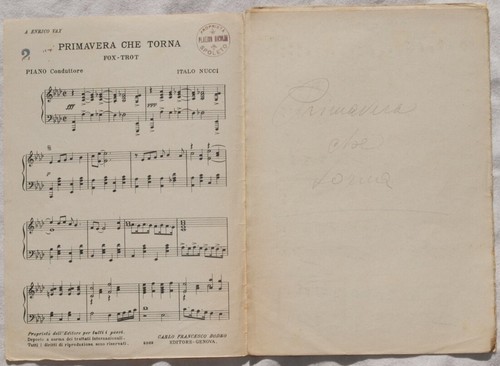 A ENRICO
2
PRIMAVERA CHE TORNA
FOX-TROT
PIANO Conduttore
ITALO NUCCI
SPOLETO
fff
p
Proprietà dell'Editore per tutti i paesi.
Deposto a norma dei trattati internazionali.
Tutti i diritti di riproduzione sono riservati.
CARLO FRANCESCO
EDITORE-GENOVA.
Primavera
che
torna